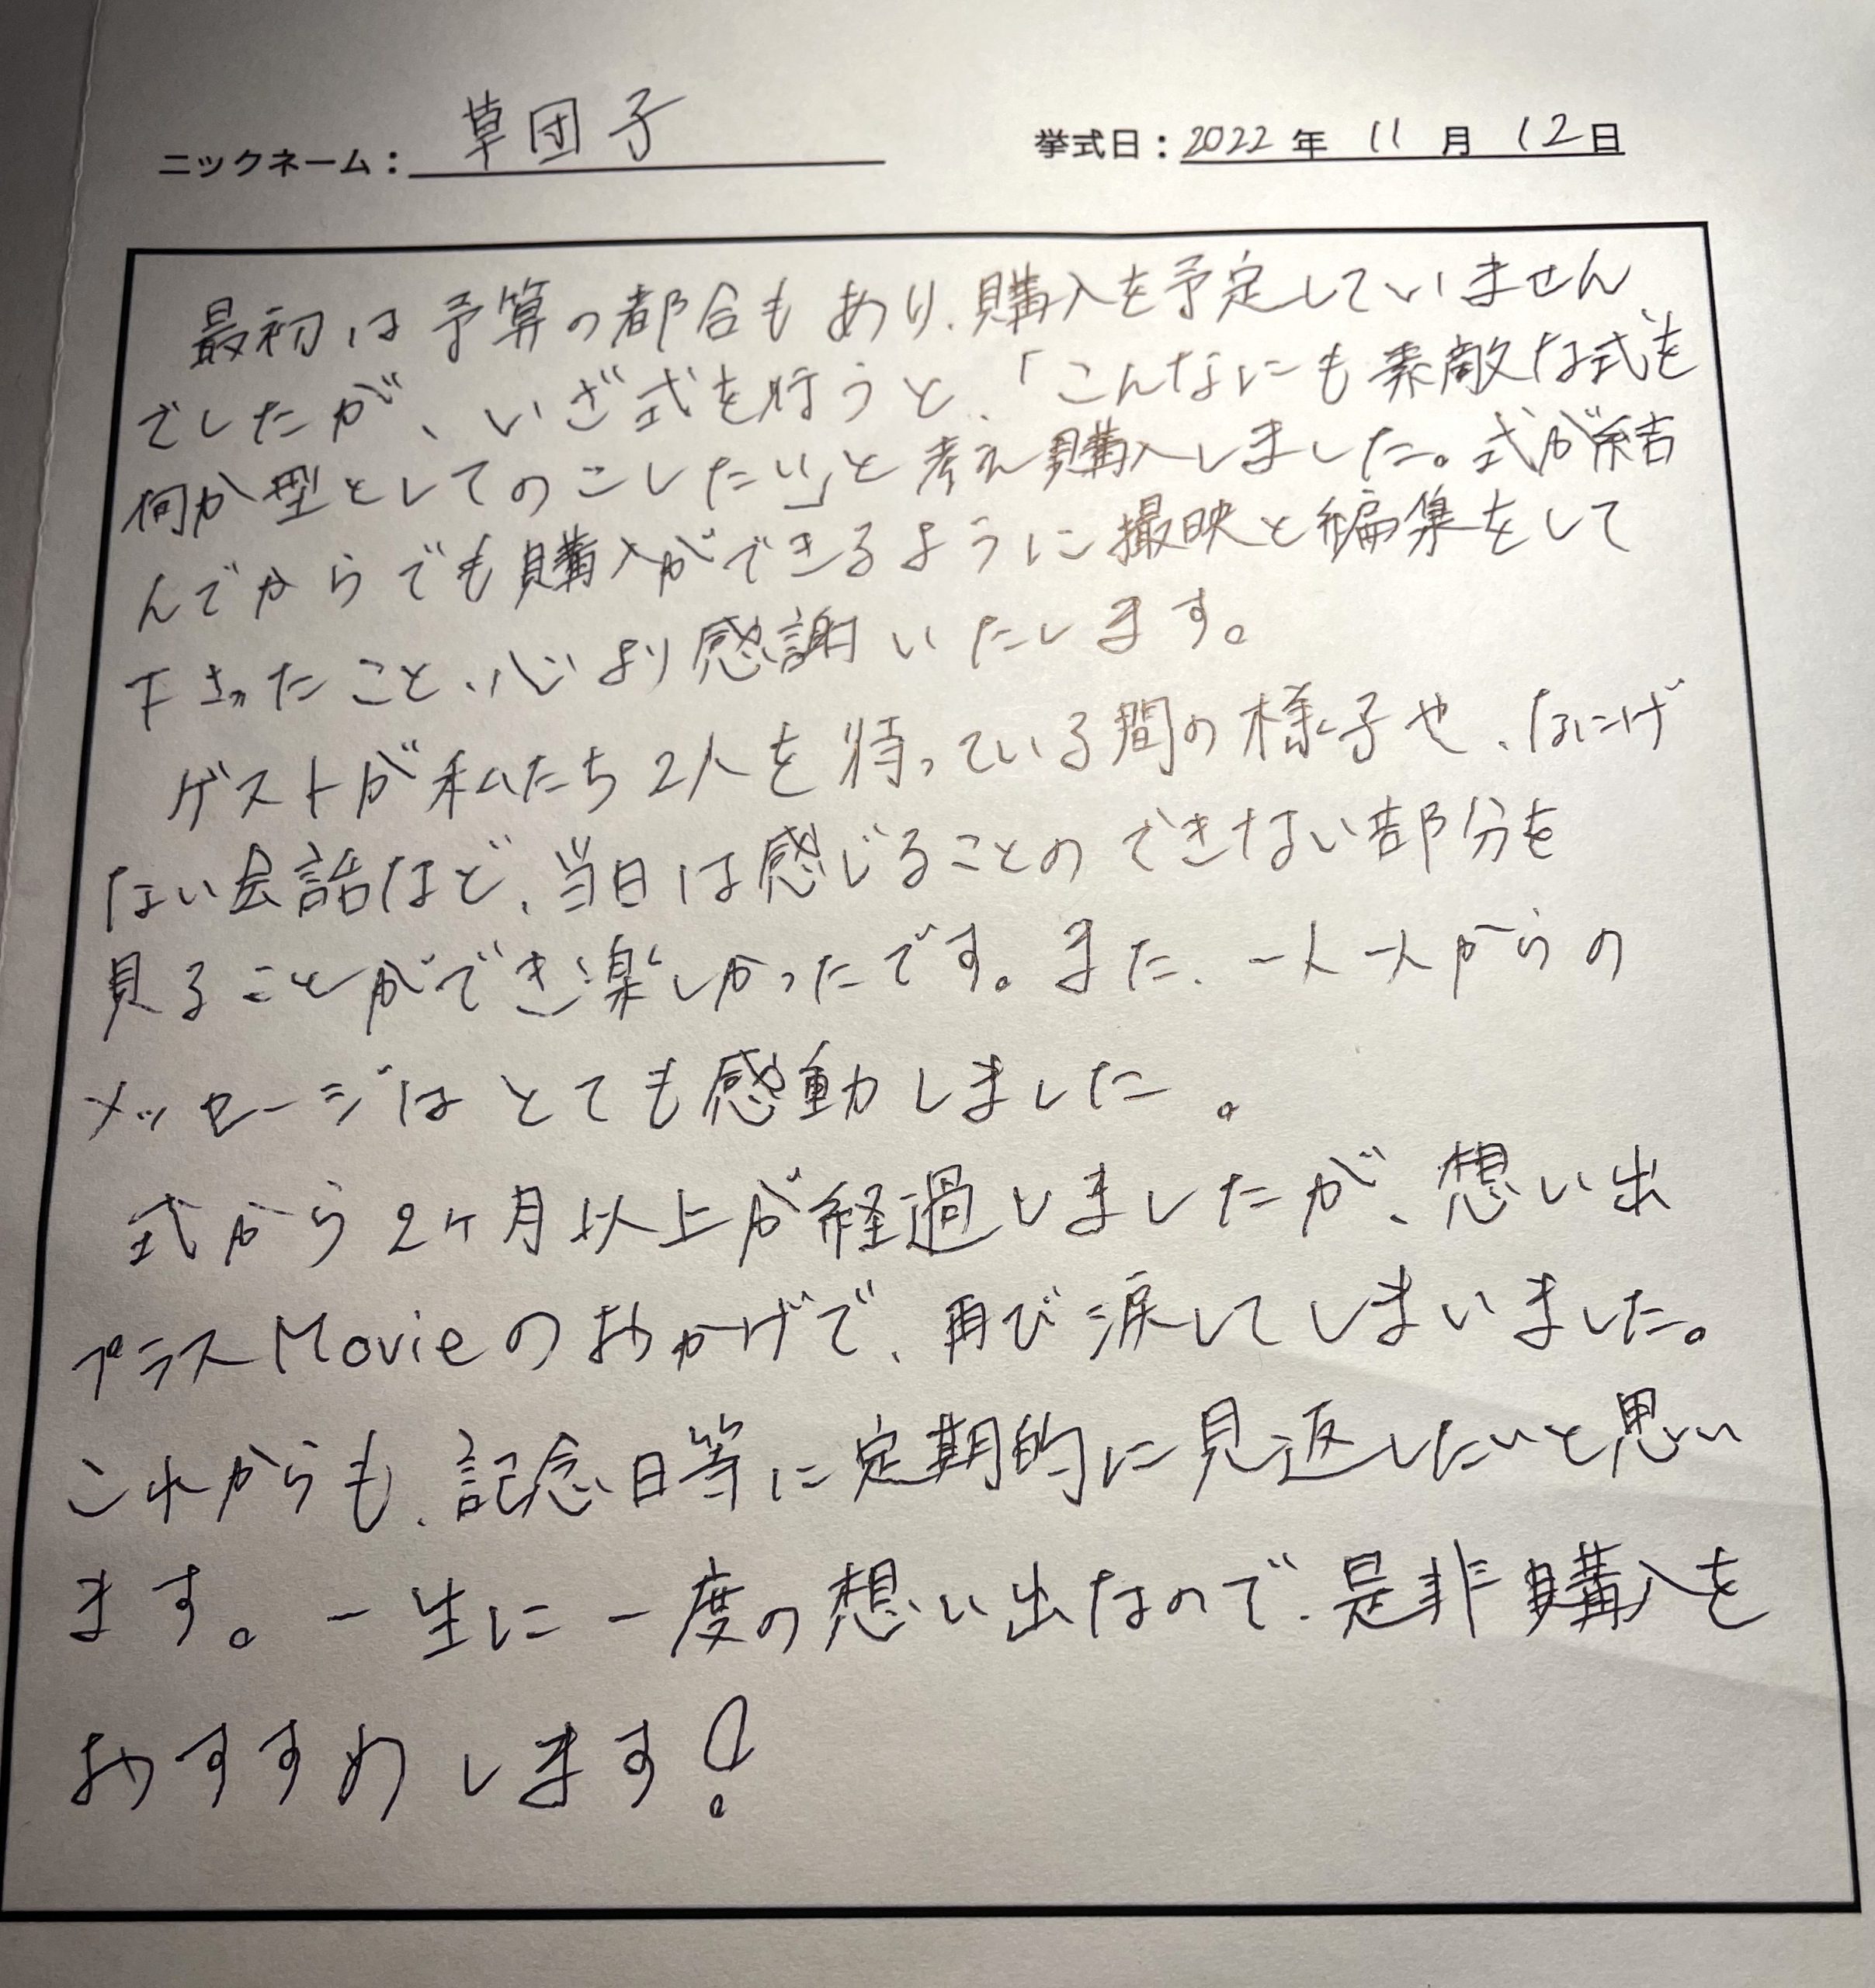 ニックネーム： 草団子 挙式日：2022年 11月 12日
最初は予算の都合もあり、購入を予定していません
でしたが、いざ式を行うと、「こんなにも素敵な式を
何か型としてのこしたい」と考え購入しました。式が結
んでからでも購入ができるように撮映と編集をして
下さったこと、心より感謝いたします。
ゲストが私たち2人を待っている間の様子や、なにげ
ない会話など、当日は感じることのできない部分を
見ることができ楽しかったです。また、一人一人からの
メッセージはとても感動しました。
式から2ヶ月以上が経過しましたが、想い出
プラスMovieのおかげで、再び涙してしまいました。
これからも、記念日等に定期的に見返したいと思い
ます。一生に一度の想い出なので、是非購入を
おすすめします！